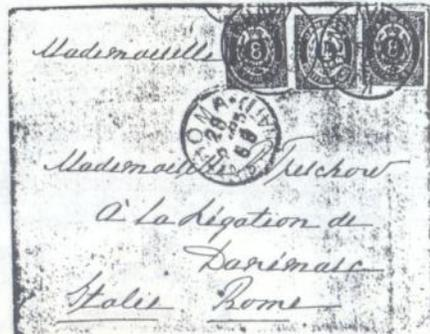 Mademoiselle
8 8
ROMA
Mademoiselle Treschow
à La Légation de
Danemarc
Italie Rome